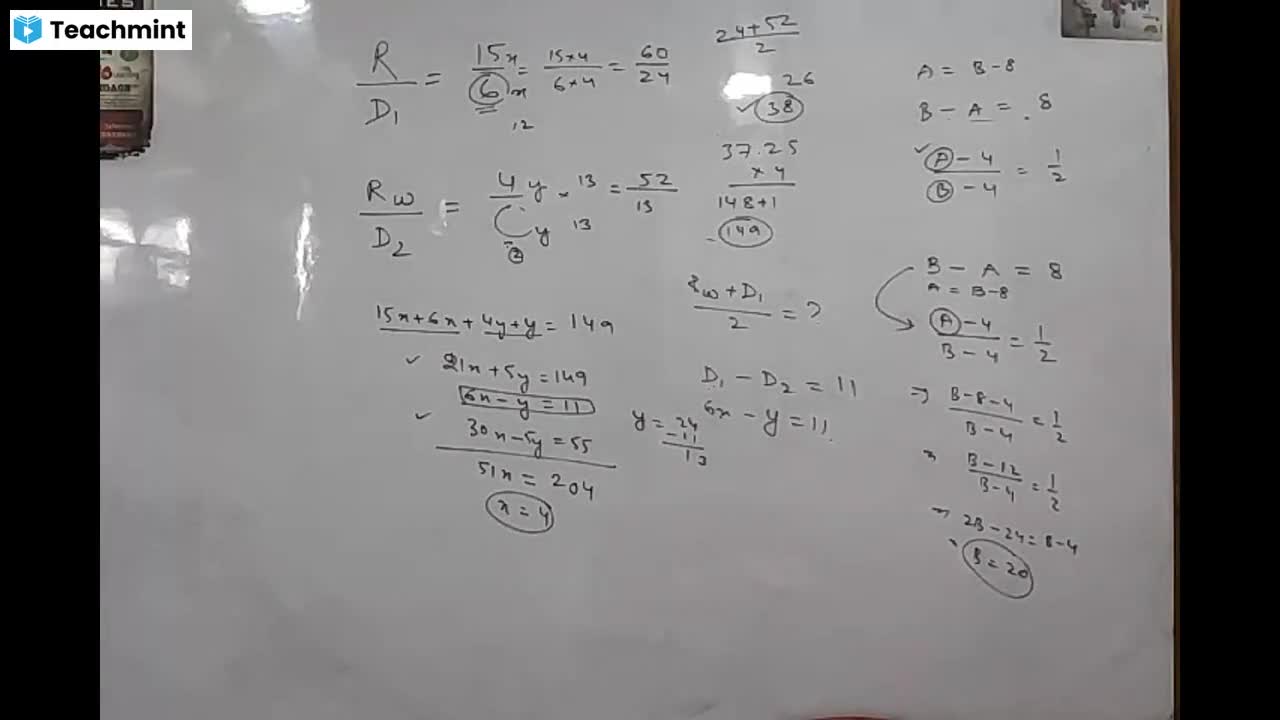 Teachmint
R/D1 = 15x/6x = 15×4/6×4 = 60/24
12
Rw/D2 = 4y × 13/y 13 = 52/13
15x+6x+4y+y = 149
21x+5y=149
6x-y=11
30x-5y=55
51x = 204
x = 4
24+52/2
26
38
37.25
×4
148+1
149
Rw+D1/2 = ?
D1 - D2 = 11
6x - y = 11
y = 24
-11
13
A = B-8
B - A = 8
A-4/B-4 = 1/2
B - A = 8
A = B-8
A-4/B-4 = 1/2
⇒ B-8-4/B-4 = 1/2
B-12/B-4 = 1/2
⇒ 2B-24=B-4
B = 20